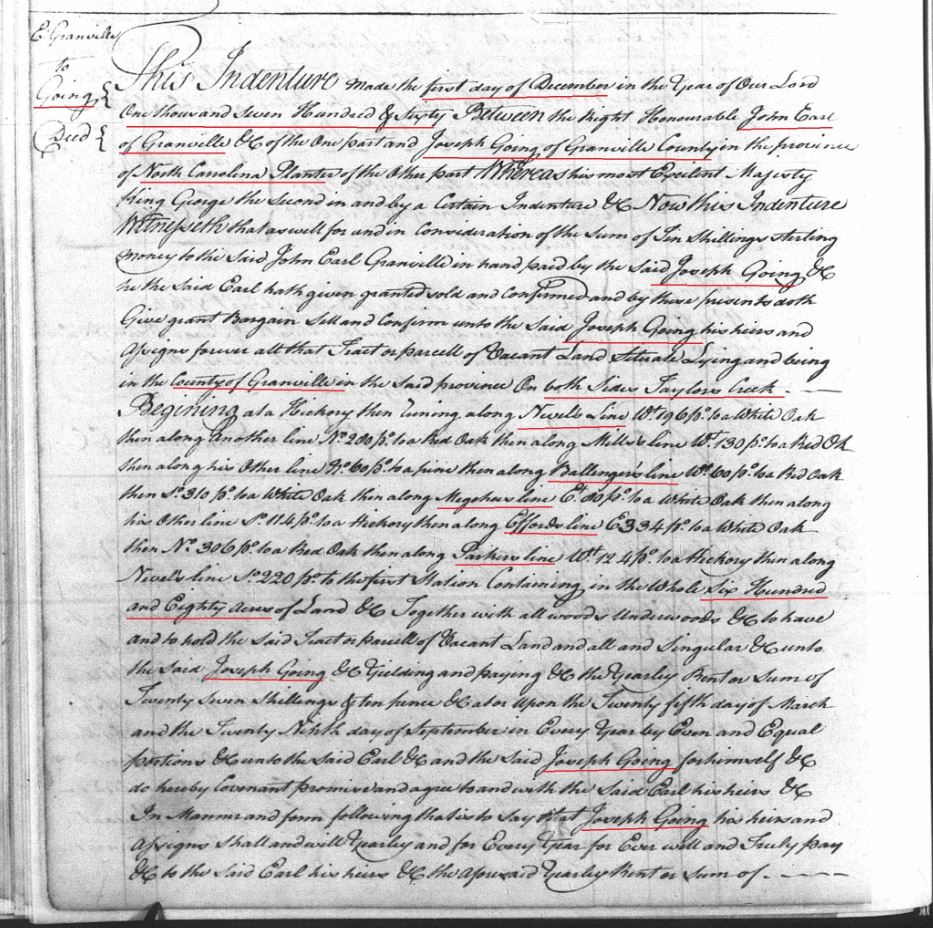 E. Granville
to
Going
Deed
This Indenture Made the first day of December in the Year of Our Lord
One thousand Seven Hundred & Sixty Between the Right Honourable John Earl
of Granville &C of the One part and Joseph Going of Granville County in the province
of North Carolina Planter of the Other part Whereas his most Exelent Majesty
King George the Second in and by a Certain Indenture &C Now this Indenture
Witnesseth that as well for and in Consideration of the Sum of Ten Shillings sterling
money to the Said John Earl Granville in hand paid by the Said Joseph Going &C
he the Said Earl hath given granted sold and Confirmed and by these presents doth
Give grant Bargain Sell and Confirm unto the Said Joseph Going his heirs and
Assigns forever all that Tract or parcell of Vacant Land Situate Lying and being
in the County of Granville in the Said province On both Sides Taylors Creek
Begining at a Hickory then runing along Nevel's Line Wt. 196 po. to a White Oak
then along another line No. 200 po. to a Red Oak then along Mills's line Wt. 130 po. to a Red Ok
then along his Other line No. 60 po. to a pine then along Ballenger's line Wt. 60 po. to a Red Oak
then So. 310 po. to a White Oak then along line Et. 80 po. to a White Oak then along
his Other line So. 114 po. to a Hickory then along Effords line E 334 po. to a White Oak
then No. 306 po. to a Red Oak then along Parkers line Wt 124 po. to a Hickory then along
Nevel's line So. 220 po. to the first Station Containing in the Whole Six Hundred
and Eighty Acres of Land &C Together with all woods Underwoods &C to have
and to hold the Said Tract or parcell of Vacant Land and all and Singular &C unto
the Said Joseph Going &C Yielding and paying &C the Yearley Rent or Sum of
Twenty Seven Shillings & ten pence &C at or Upon the Twenty fifth day of March
and the Twenty Ninth day of September in Every Year by Even and Equal
portions &C unto the Said Earl &C and the Said Joseph Going for himself &C
do hereby Covenant promise and agree to and with the Said Earl his heirs &C
In Manner and form following that is to Say that Joseph Going his heirs and
Assigns Shall and will Yearley and for Every Year for Ever well and Truly pay
&C to the Said Earl his heirs &C the Aforesaid Yearley Rent or Sum of